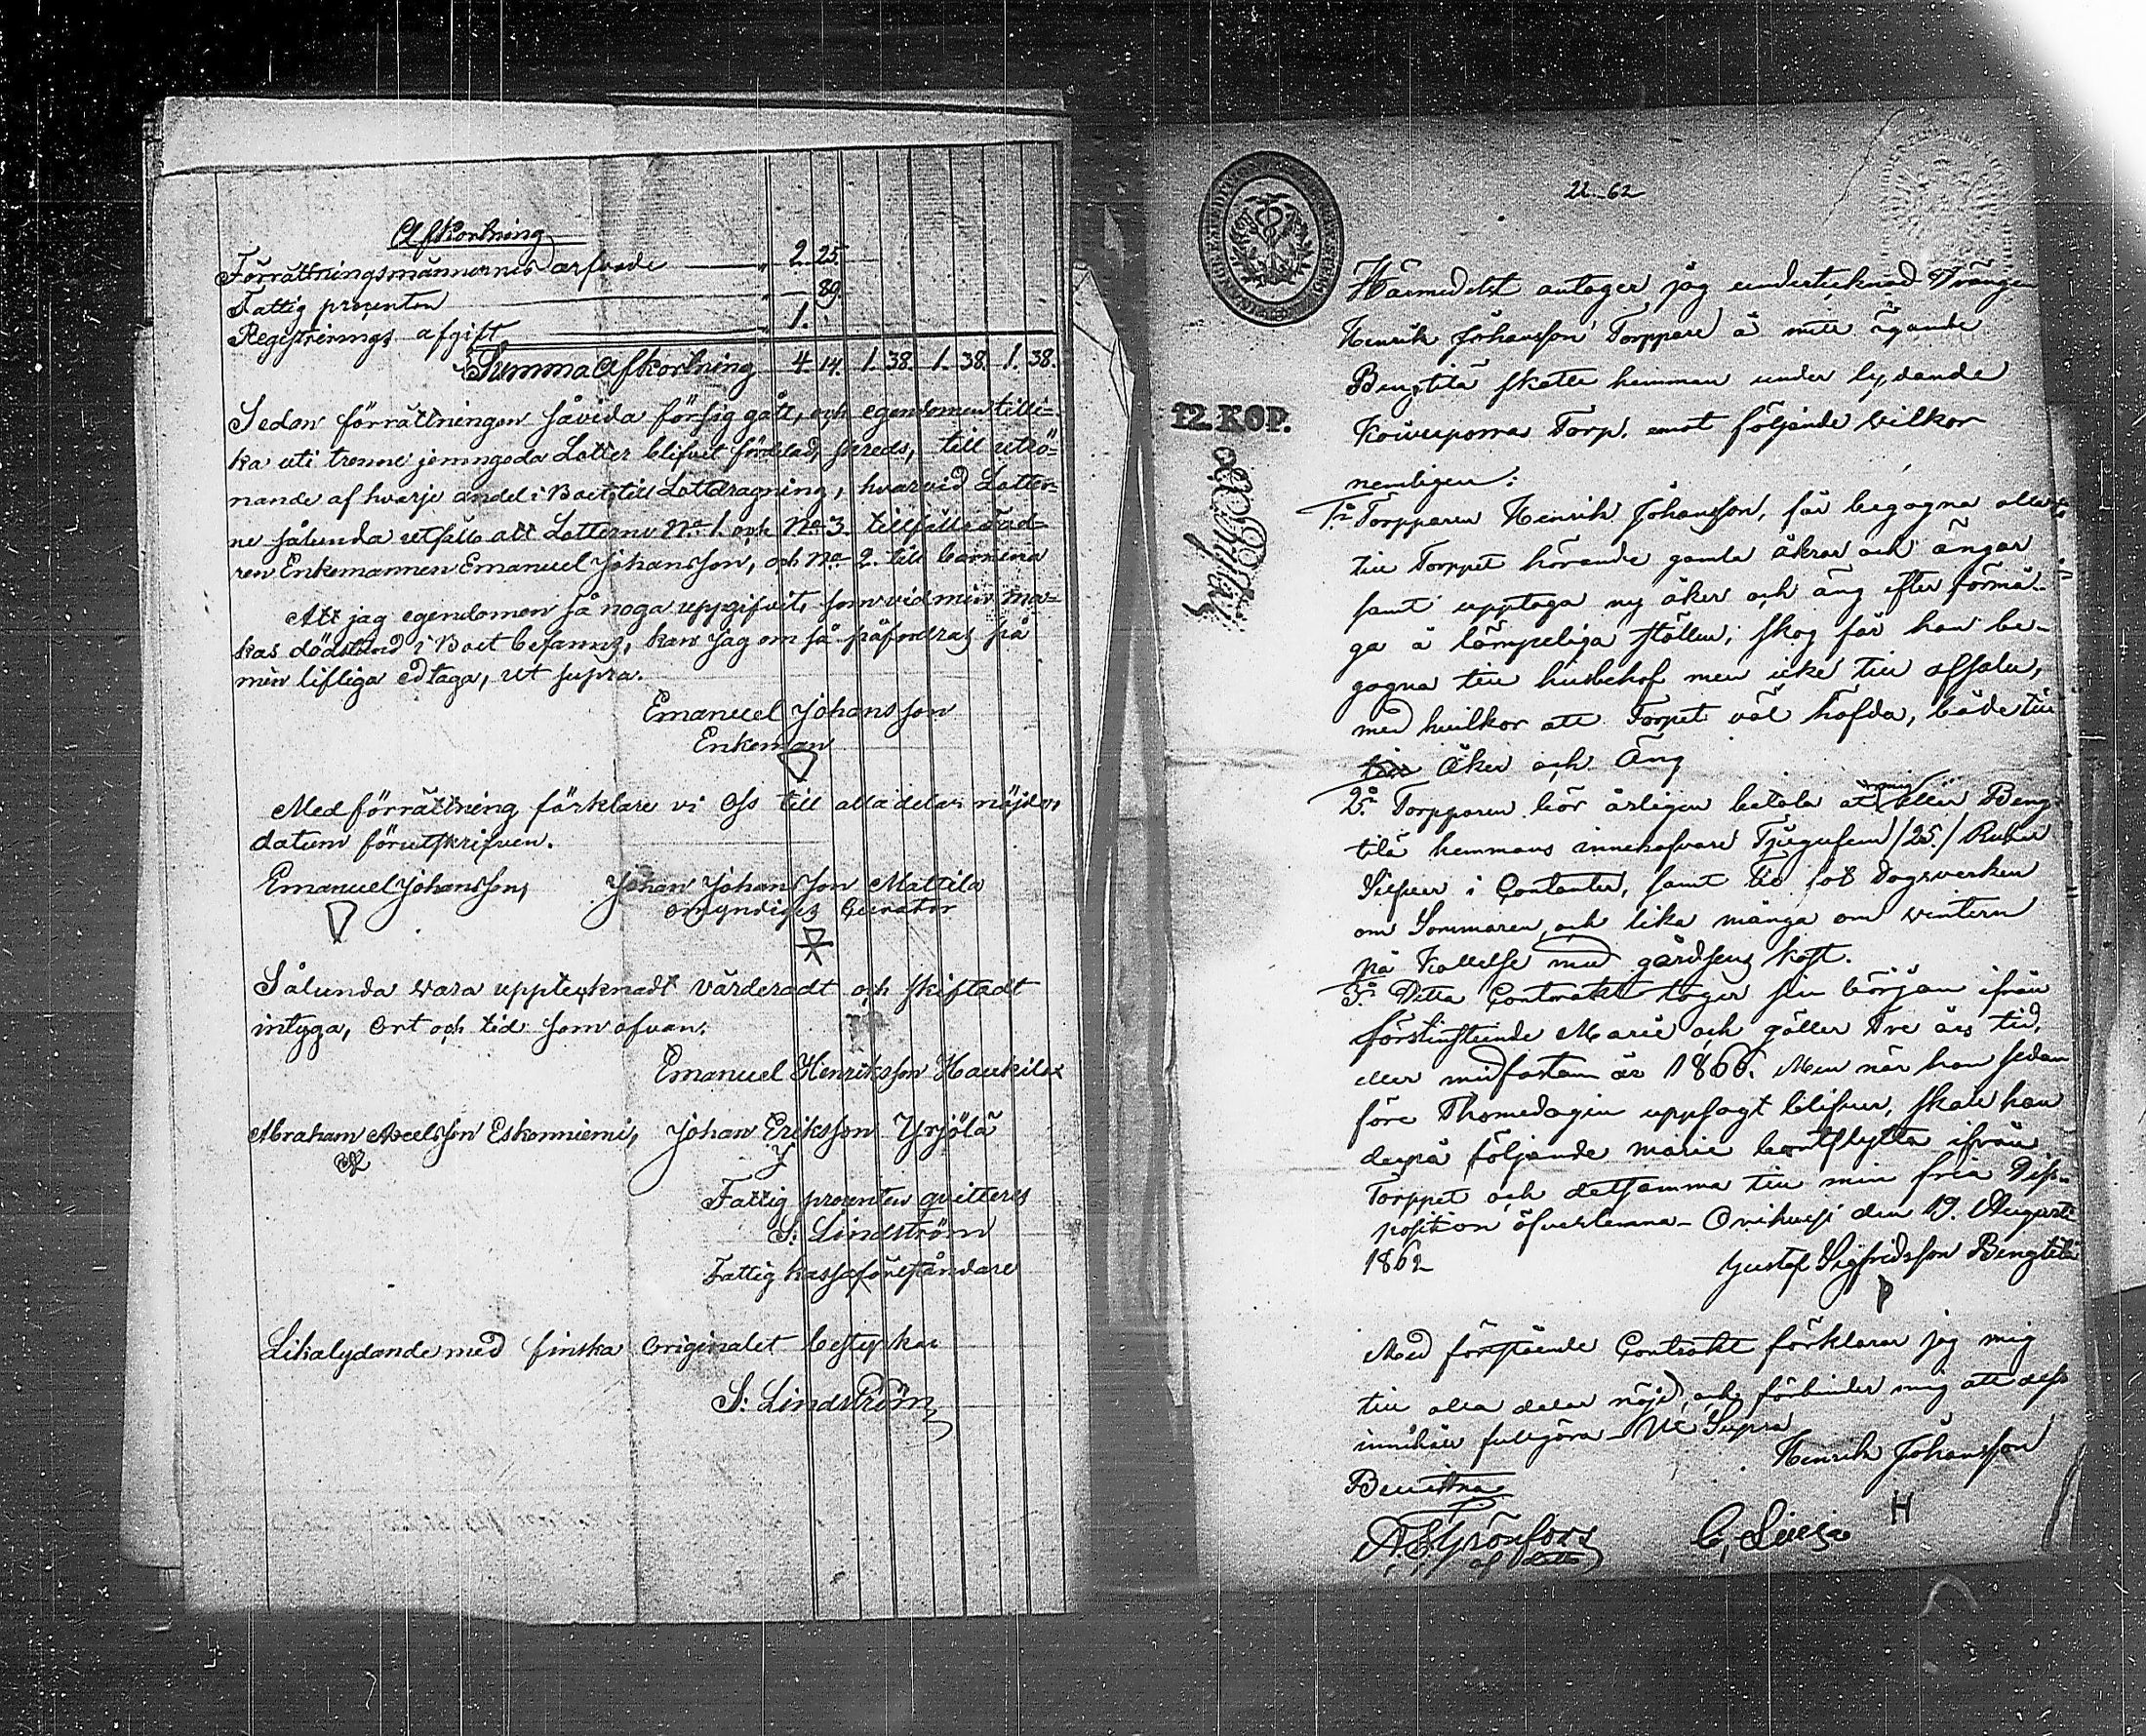 Afkortning
Förrättningsmännernes arfvode 2. 25.
Fattig procenten 89.
Registrerings afgift 1.
Summa Afkortning 4. 14. 1. 38. 1. 38. 1. 38.
Sedan förrättningen såvida försig gått, och egendomen tilli=
ka uti trenne jemngoda Lotter blifvit fördelad, skreds, till utrö=
nande af hvarje andel i Boet till Lottdragning, hvarvid Lotter=
ne sålunda utföllo att Lotterne No 1. och No 3. tillföllo Fad=
ren Enkemannen Emanuel Johansson, och No 2. till barnena
Att jag egendomen så noga uppgifvit, som vid min ma=
kas dödstund i Boet befanns, kan jag om så påfordras på
min lifliga ed taga, ut supra.
Emanuel Johansson
Enkeman
Med förrättning förklare vi Oss till alla delar nöjde,
datum förutskrifven.
Emanuel Johansson, Johan Johansson Mattila
omyndiges Curator
Sålunda vara upptecknadt värderadt och skiftadt
intyga, Ort och tid som ofvan.
Emanuel Henriksson Haukila
Abraham Axelsson Eskonniemi, Johan Eriksson Yrjölä
Fattig procenten qvitteres
S: Lindström
Fattig kassaföreståndare
Likalydande med finska Originalet bestyrkar
S: Lindström
22-62
12. KOP.
Härmedelst antager jag undertecknad Drängen
Henrik Johansson Torppare å mitt ägande
Bengtilä skatte hemman under lydande
Torp. emot följande vilkor
nemligen:
1:o Torpparen Henrik Johansson, får begagna alla
till Torppet hörande gamla åkrar och ängar
samt upptaga ny åker och äng efter förmå-
ga å lämpeliga ställen, skog får han be-
gagna till husbehof men icke till afsalu,
med hvilkor att Torpet väl häfda, både till
till Åker och Äng
2:o Torpparen bör årligen betala åt mig eller Beng-
tilä hemmans innehafvare Tjugufem /25./ Rubel
Silfver i Contanter, samt tio fot Dagsverken
om Sommaren, och lika många om vintern
på Kallelse med gårdsens kost.
3:o Detta Contrakt tager sin början ifrån
förstinstunde Marie och gäller Tre års tid,
eller midfastan år 1866. Men när han sedan
före Thomedagen uppsagt blifver, skall han
derpå följande marie bortflytta ifrån
Torppet och detsamma till min fria Diss-
position öfverlemna - Orihvesi den 19. Augusti
1862
Gustaf Sigfridsson Bengtilä
Med förestående Contrakt förklarar jag mig
till alla delar nöjd, och förbinder mig att dess
innehåll fullgöra - Ut Supra
Henrik Johansson
H
Bevittna
Grönfors